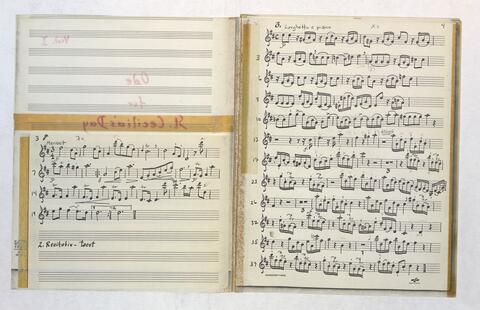 Viol. I
Ode
for
St. Cecilia's Day
3
Menuet
7
2. Recitativ - tacet
3. Larghetto e piano
4
3
6
9
22
26
35
37